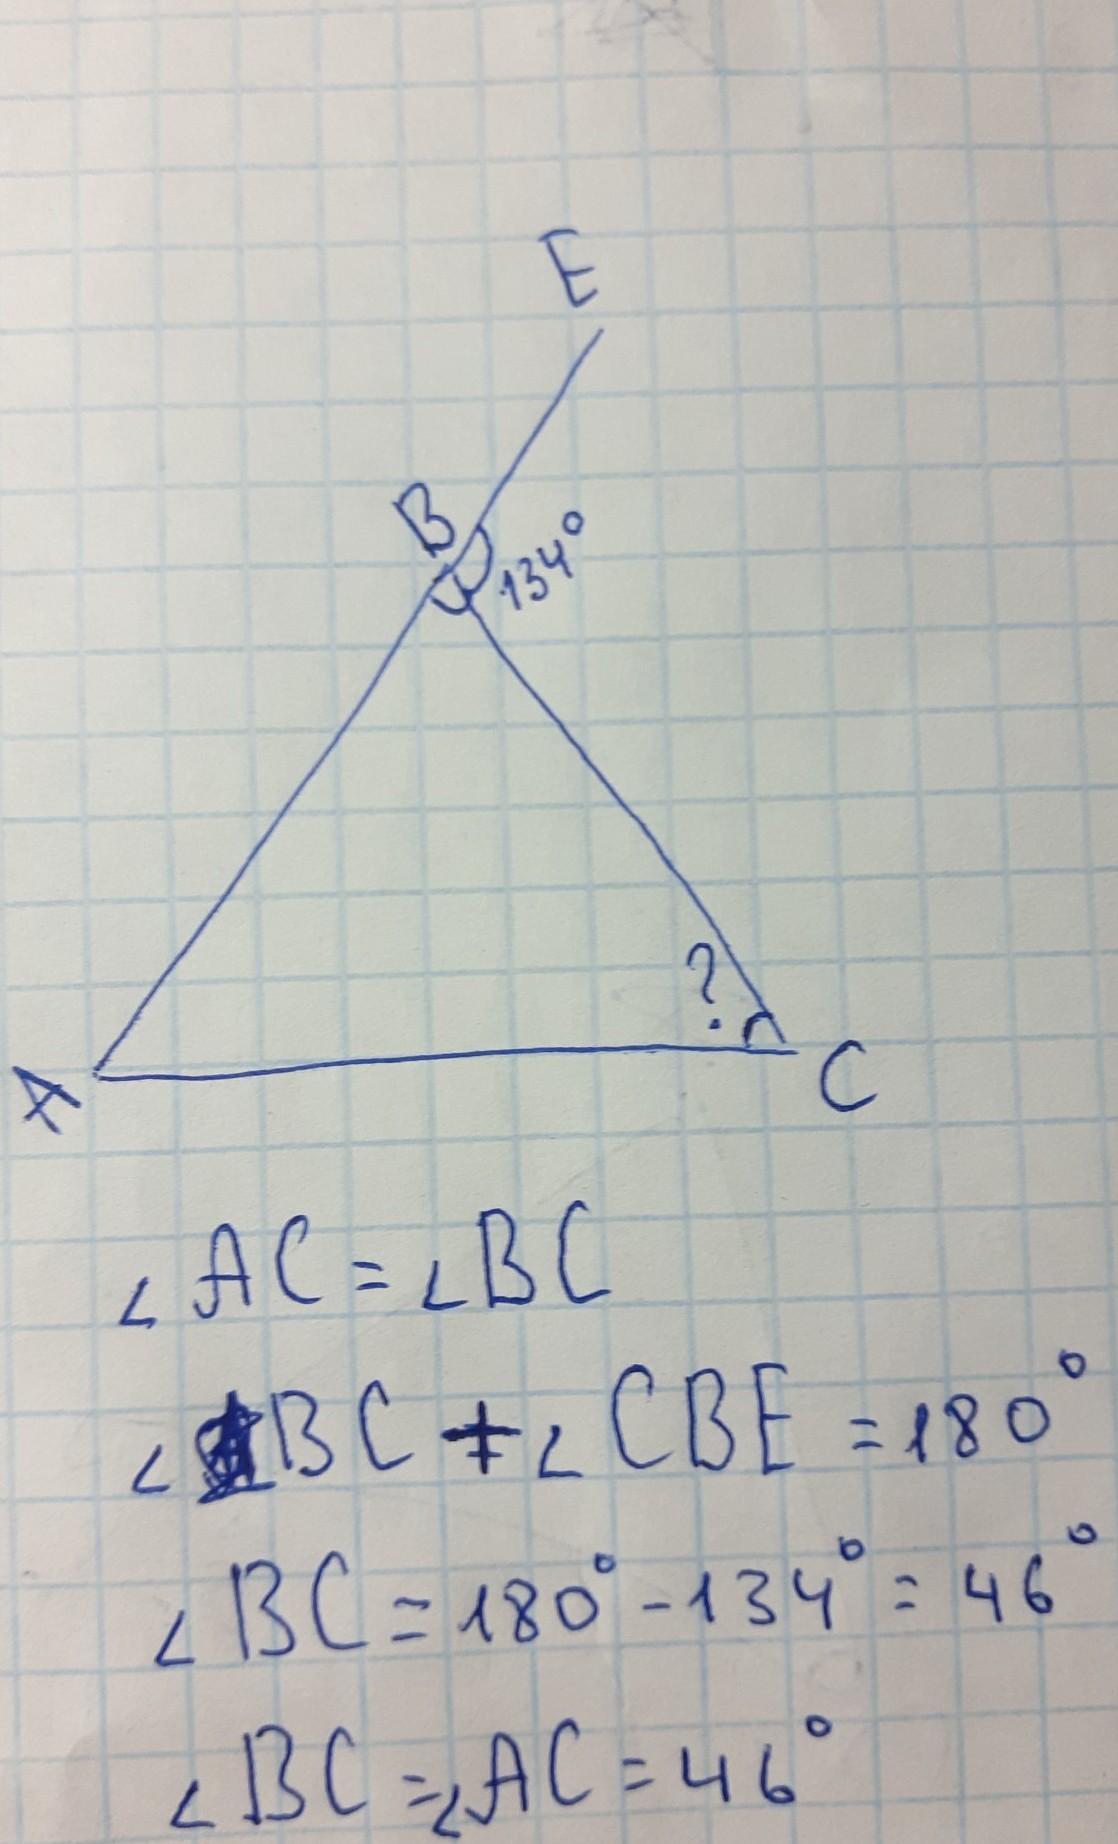 E
B
134°
?
A
C
∠AC=∠BC
∠BC+∠CBE=180°
∠BC=180°-134°=46°
∠BC=∠AC=46°